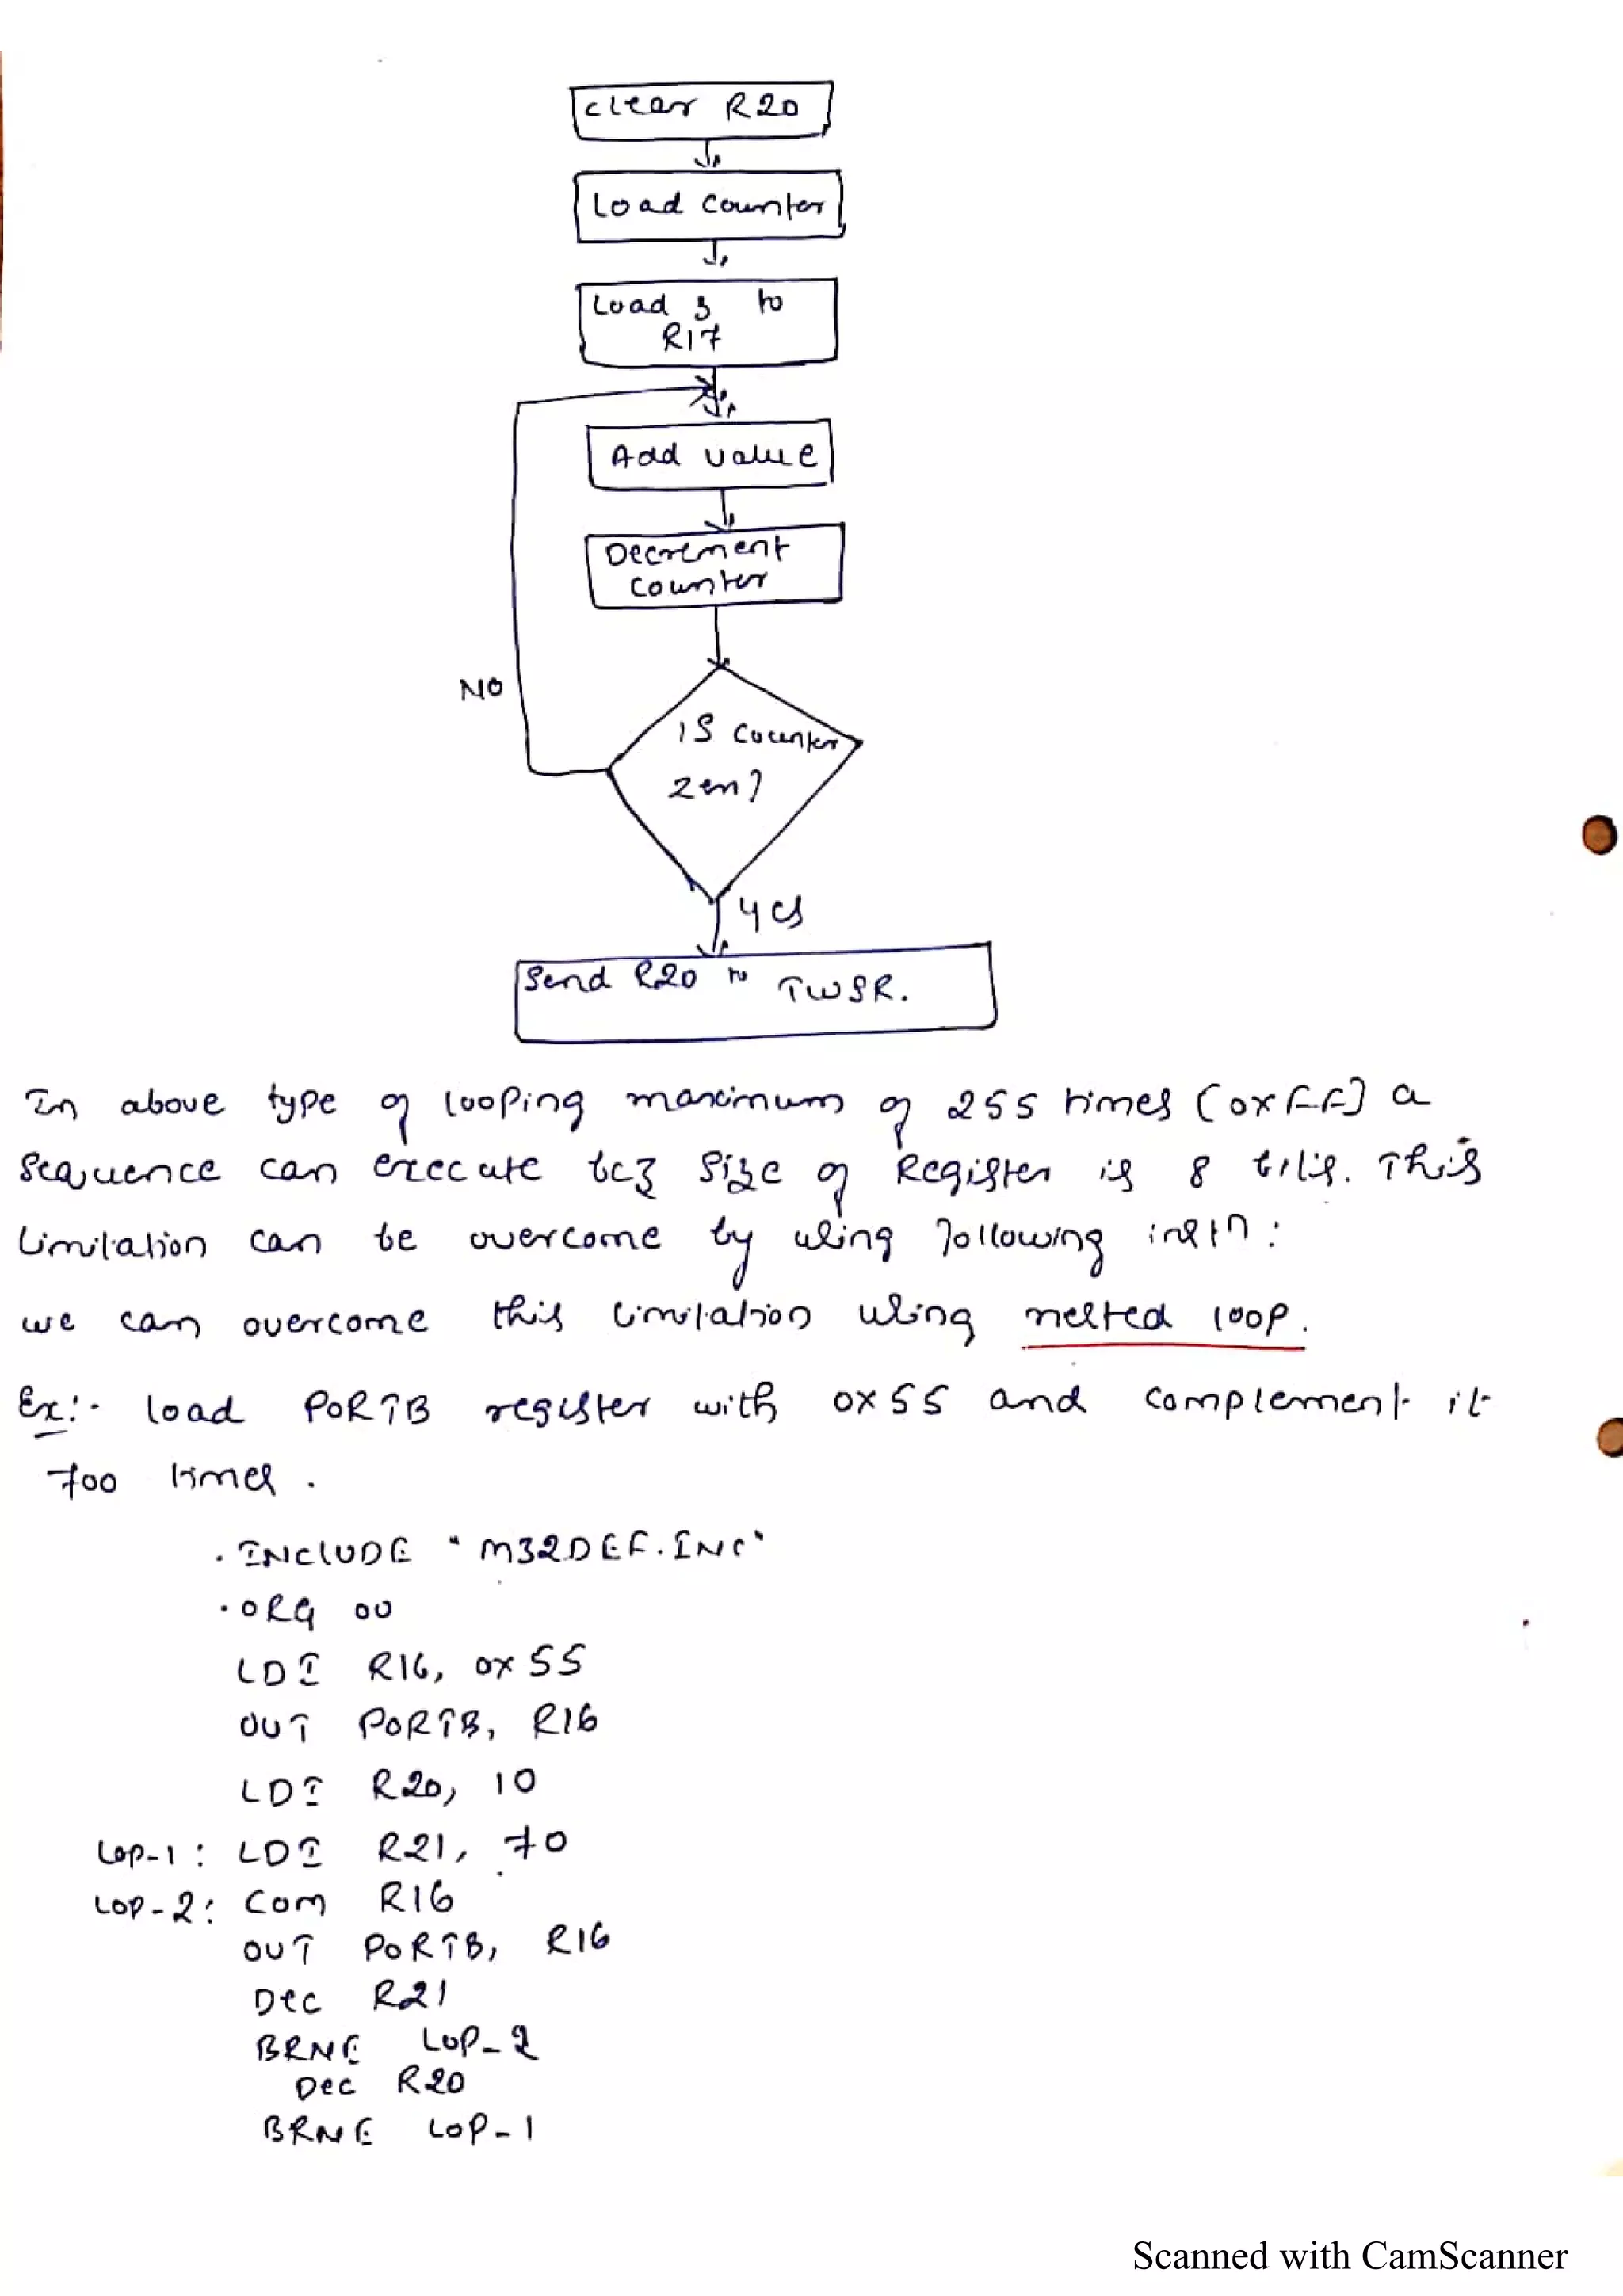 clear R20
Load counter
Load 3 to
R17
Add value
Decrement
counter
NO
IS counter
zero?
yes
Send R20 to TWSR.
In above type of looping maximum of 255 times (0xFF) a
sequence can execute bcz size of Register is 8 bits. This
limitation can be overcome by using following instn:
we can overcome this limitation using nested loop.
Ex:- load PORTB register with 0x55 and complement it
700 times.
.INCLUDE "M32DEF.INC"
.ORG 00
LDI R16, 0x55
OUT PORTB, R16
LDI R20, 10
Lop-1: LDI R21, 70
Lop-2: Com R16
OUT PORTB, R16
Dec R21
BRNE Lop-2
Dec R20
BRNE Lop-1
Scanned with CamScanner